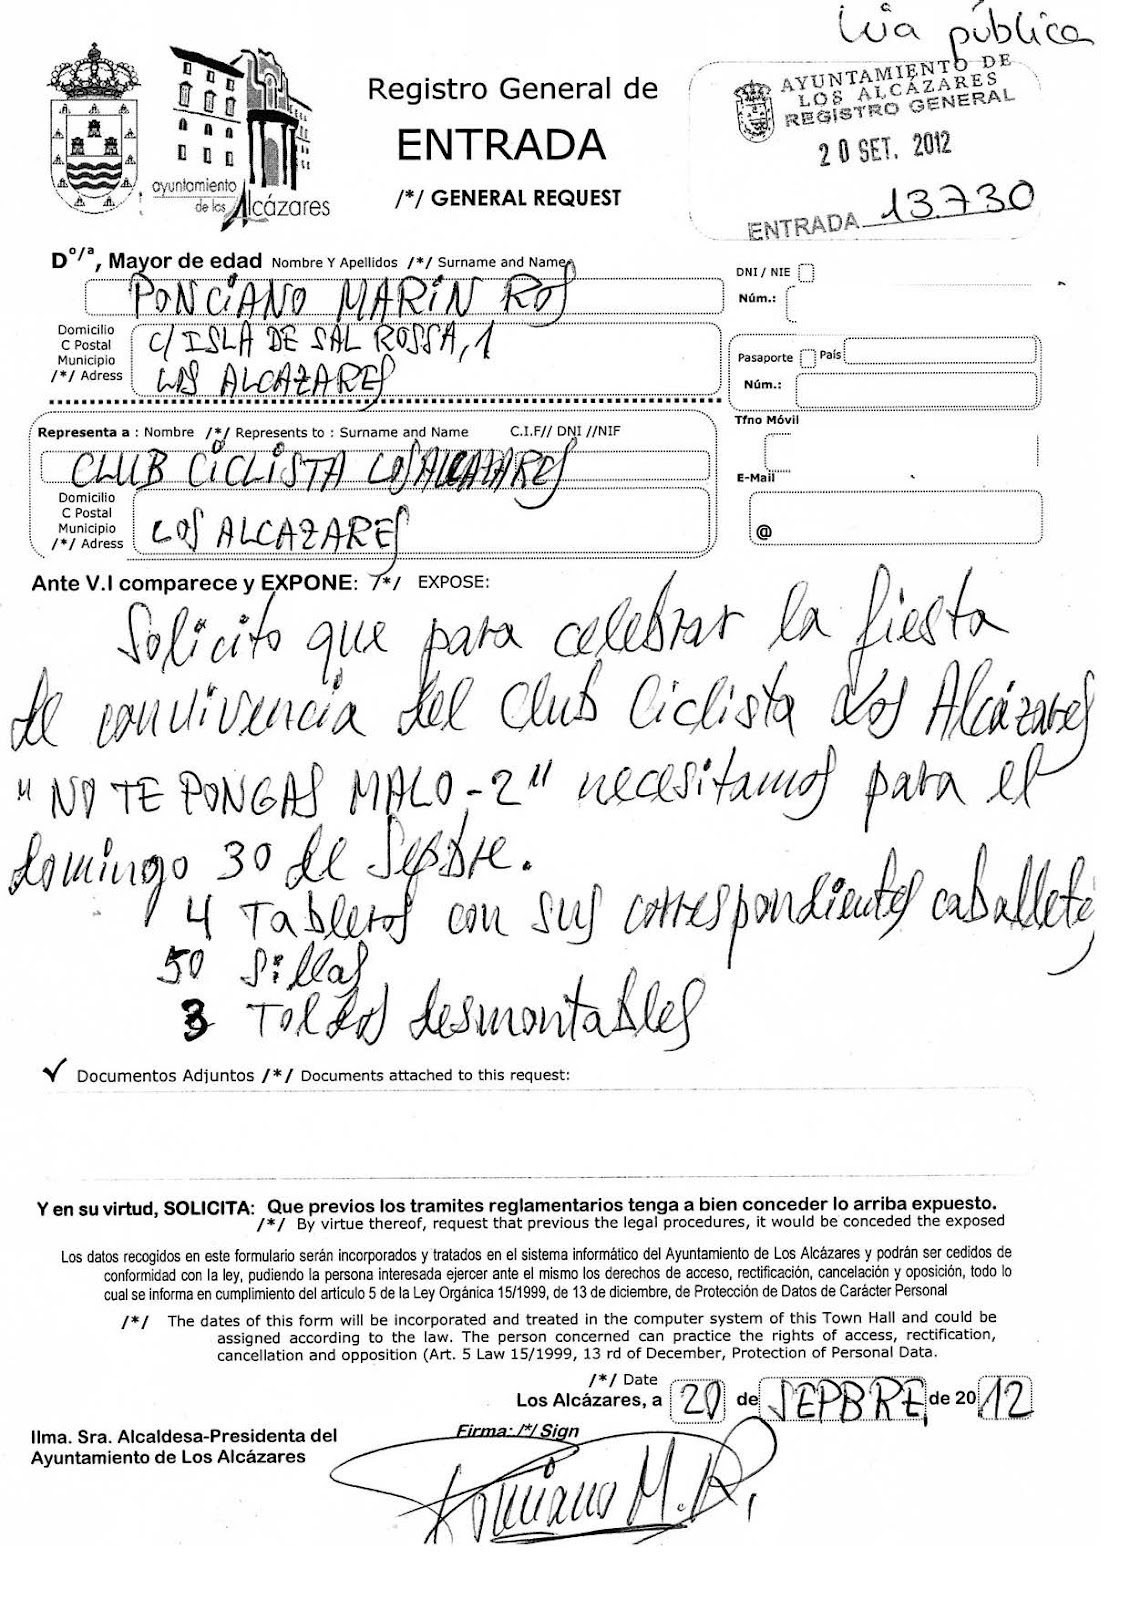 Via pública
AYUNTAMIENTO DE
LOS ALCÁZARES
REGISTRO GENERAL
20 SET. 2012
ENTRADA 13.730
ayuntamiento
de los Alcázares
Registro General de
ENTRADA
/*/ GENERAL REQUEST
Dº/ª, Mayor de edad Nombre Y Apellidos /*/ Surname and Name
PONCIANO MARIN ROS
DNI / NIE
Núm.:
Domicilio
C Postal
Municipio
/*/ Adress
C/ ISLA DE SAL ROSSA, 1
LOS ALCAZARES
Pasaporte País
Núm.:
Representa a : Nombre /*/ Represents to : Surname and Name C.I.F// DNI //NIF
CLUB CICLISTA LOS ALCAZARES
Tfno Móvil
Domicilio
C Postal
Municipio
/*/ Adress
LOS ALCAZARES
E-Mail
@
Ante V.I comparece y EXPONE: /*/ EXPOSE:
Solicito que para celebrar la fiesta
de convivencia del Club Ciclista Los Alcázares
"NO TE PONGAS MALO-2" necesitamos para el
domingo 30 de Sepbre.
4 Tableros con sus correspondientes caballete
50 Sillas
3 Toldos desmontables
✓ Documentos Adjuntos /*/ Documents attached to this request:
Y en su virtud, SOLICITA: Que previos los tramites reglamentarios tenga a bien conceder lo arriba expuesto.
/*/ By virtue thereof, request that previous the legal procedures, it would be conceded the exposed
Los datos recogidos en este formulario serán incorporados y tratados en el sistema informático del Ayuntamiento de Los Alcázares y podrán ser cedidos de
conformidad con la ley, pudiendo la persona interesada ejercer ante el mismo los derechos de acceso, rectificación, cancelación y oposición, todo lo
cual se informa en cumplimiento del articulo 5 de la Ley Orgánica 15/1999, de 13 de diciembre, de Protección de Datos de Carácter Personal
/*/ The dates of this form will be incorporated and treated in the computer system of this Town Hall and could be
assigned according to the law. The person concerned can practice the rights of access, rectification,
cancellation and opposition (Art. 5 Law 15/1999, 13 rd of December, Protection of Personal Data.
/*/ Date
Los Alcázares, a 20 de SEPBRE, de 2012
Firma: /*/ Sign
Ilma. Sra. Alcaldesa-Presidenta del
Ayuntamiento de Los Alcázares
Ponciano M. R.